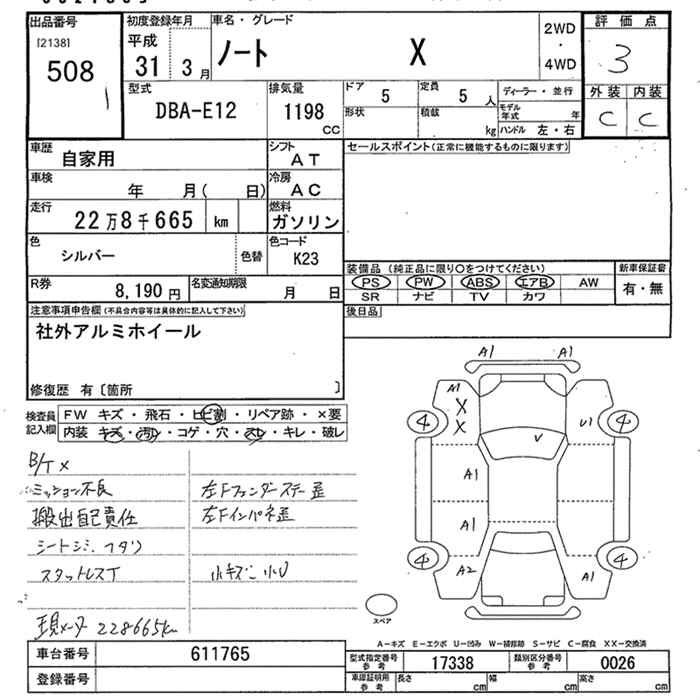 出品番号
[2138]
508
初度登録年月
平成
31 3 月
車名・グレード
ノート X
2WD
・
4WD
評価点
3
外装 内装
C C
型式
DBA-E12
排気量
1198
CC
ドア 5
定員 5 人
ディーラー・並行
形状
積載 kg
モデル年式 年
ハンドル 左・右
車歴 自家用
シフト AT
セールスポイント(正常に機能するものに限ります)
車検 年 月( 日)
冷房 AC
走行 22万8千665 km
燃料 ガソリン
色 シルバー 色替
色コード K23
装備品 (純正品に限り○をつけてください)
新車保証書
PS PW ABS エアB AW
SR ナビ TV カワ
有・無
R券 8,190 円
名変通知期限 月 日
後日品
注意事項申告欄(不具合内容等は具体的に記入して下さい)
社外アルミホイール
修復歴 有〔箇所 〕
検査員記入欄
FW キズ・飛石・ヒビ割・リペア跡・×要
内装 キズ・汚レ・コゲ・穴・スレ・キレ・破レ
B/T×
ミッション不良
左Fフェンダーステー歪
搬出自己責任
左Fインパネ歪
シートシミ、
スタットレスT
小キズ 小U
現メータ 228665km
A1 A1
A1
X
X
4 U1 4
V
A1
A1
4 A2 A1 4
スペア
A-キズ E-エクボ U-凹み W-補修跡 S-サビ C-腐食 XX-交換済
車台番号 611765
登録番号
型式指定番号参考 17338
類別区分番号参考 0026
車認証明用参考 長さ cm 幅 cm 高さ cm